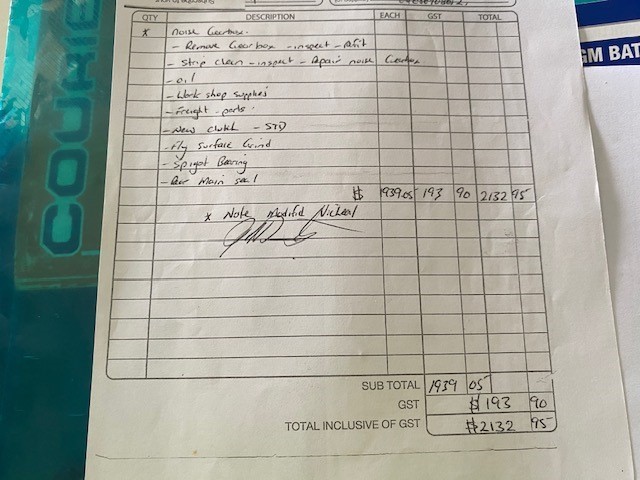 QTY DESCRIPTION EACH GST TOTAL
* Noise Gearbox.
- Remove Gearbox - inspect - Refit
- Strip clean - inspect - Repair noise Gearbox
- oil
- Work shop supplies
- Freight - parts.
- New clutch - STD
- Fly surface Grind
- Spigot Bearing
- Rear Main seal
$ 1939.05 193 90 2132 95
* Note Modifid
SUB TOTAL 1939 05
GST $ 193 90
TOTAL INCLUSIVE OF GST $2132 95
COURIE
GM BAT